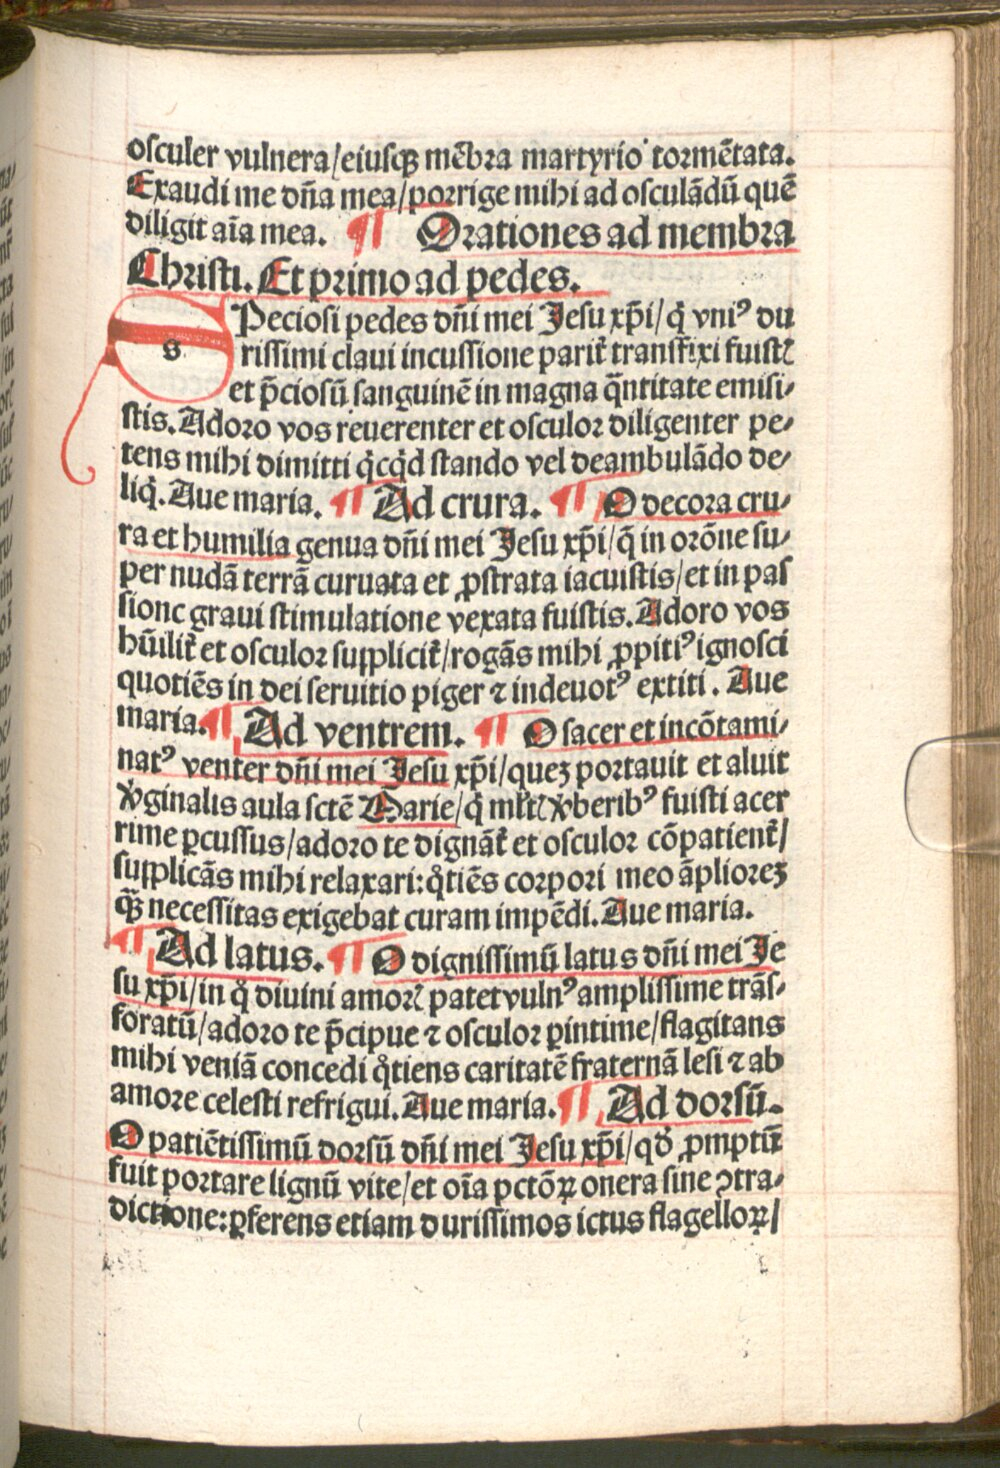 osculer vulnera/eiusqꝫ mēbra martyrio tormētata.
Exaudi me dn̄a mea/porrige mihi ad osculādū quē
diligit aīa mea. ¶ Orationes ad membra
Christi. Et primo ad pedes.
SPeciosi pedes dn̄i mei Jesu xp̄i/q̇ vniꝰ du
rissimi claui incussione parit̄ transfixi fuistꝭ
et p̄ciosū sanguinē in magna q̄ntitate emisi⸗
stis. Adoro vos reuerenter et osculor diligenter pe⸗
tens mihi dimitti q̇cq̇d stando vel deambulādo de⸗
liq̇. Aue maria. ¶ Ad crura. ¶ O decora cru⸗
ra et humilia genua dn̄i mei Jesu xp̄i/q̇ in orōne su⸗
per nudā terrā curuata et ꝓstrata iacuistis/et in pas
sione graui stimulatione vexata fuistis. Adoro vos
hūilit̄ et osculor supplicit̄/rogās mihi ꝓpitiꝰ ignosci
quotiēs in dei seruitio piger ⁊ indeuotꝰ extiti. Aue
maria. ¶ Ad ventrem. ¶ O sacer et incōtami⸗
natꝰ venter dn̄i mei Jesu xp̄i/quez portauit et aluit
v̇ginalis aula sctē Marie/q̇ mlṫꝭ v̇beribꝰ fuisti acer
rime ꝑcussus/adoro te dignāt̄ et osculor cōpatient̄/
supplicās mihi relaxari: q̊tiēs corpori meo āpliorez
qꝫ̄ necessitas exigebat curam impēdi. Aue maria.
¶ Ad latus. ¶ O dignissimū latus dn̄i mei Je
su xp̄i/in q̊ diuini amorꝭ patet vulnꝰ amplissime trās⸗
foratū/adoro te p̄cipue ⁊ osculor ꝑintime/flagitans
mihi veniā concedi q̊tiens caritatē fraternā lesi ⁊ ab
amore celesti refrigui. Aue maria. ¶ Ad dorsū.
O patiētissimū dorsū dn̄i mei Jesu xp̄i/qd̓ ꝓmptū
fuit portare lignū vite/et oīa pctōꝝ onera sine ꝯtra⸗
dictione: ꝑferens etiam durissimos ictus flagelloꝝ/